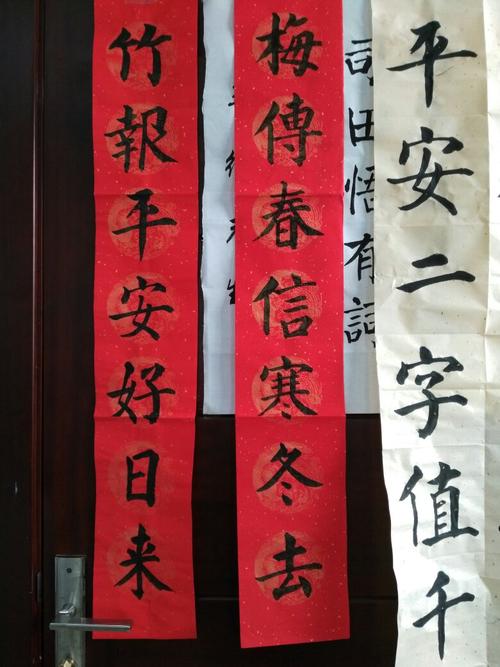 平安二字值千
田悟有
梅傳春信寒冬去
竹報平安好日来